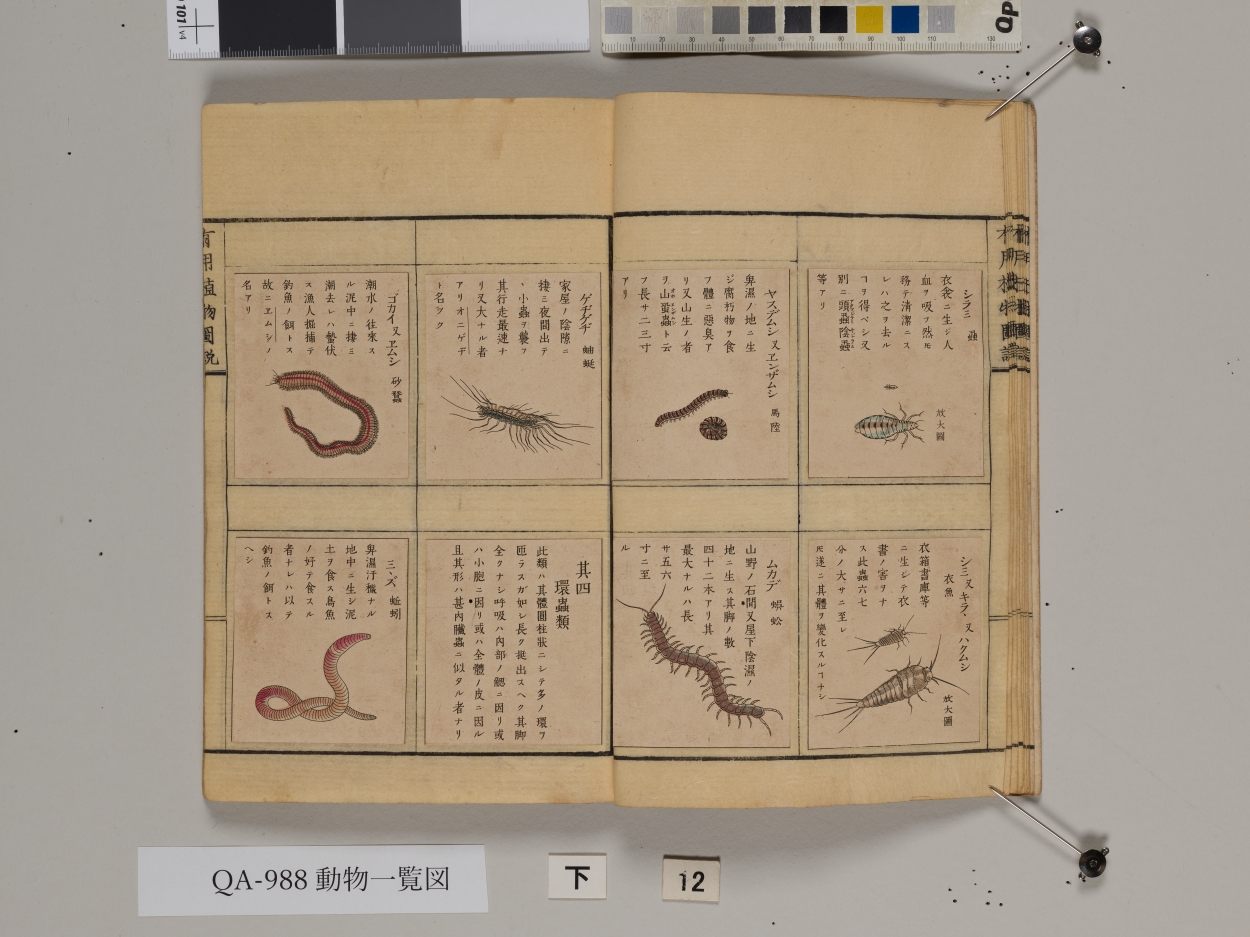 シラミ 蝨
衣衾ニ生ジ人
血ヲ吸フ然ㇳモ
務テ清潔ニス
レハ之ヲ去ル
ヿヲ得ベシ又
別ニ頭蝨陰蝨
等アリ
放大圖
ヤスデムシ 又 ヱンザムシ 馬陸
卑濕ノ地ニ生
ジ腐朽物ヲ食
フ體ニ惡臭ア
リ又山生ノ者
ヲ山蛩蟲ト云
フ長サ二三寸
アリ
ゲヂゲヂ 蚰蜒
家屋ノ陰隙ニ
棲ミ夜間出テ
ヽ小蟲ヲ襲フ
其行走最速ナ
リ又大ナル者
アリオニゲヂ
ト名ツク
ゴカイ 又 ヱムシ 砂蠶
潮水ノ往來ス
ル泥中ニ棲ミ
潮去レハ蟄伏
ス漁人掘捕テ
釣魚ノ餌トス
故ニヱムシノ
名アリ
シミ 又 キラヽ 又 ハクムシ
衣魚
衣箱書庫等
ニ生シテ衣
書ノ害ヲナ
ス此蟲六七
分ノ大サニ至レ
ㇳモ遂ニ其體ヲ變化スルヿナシ
放大圖
ムカデ 蜈蚣
山野ノ石間又屋下陰濕ノ
地ニ生ス其脚ノ數
四十二本アリ其
最大ナルハ長
サ五六
寸ニ至
ル
其四
環蟲類
此類ハ其體圓柱狀ニシテ多ノ環ヲ
匝ラスガ如シ長ク挺出スヘク其脚
全クナシ呼吸ハ内部ノ鰓ニ因リ或
ハ小胞ニ因リ或ハ全體ノ皮ニ因ル
且其形ハ甚内臟蟲ニ似タル者ナリ
ミヽズ 蚯蚓
卑濕汙穢ナル
地中ニ生シ泥
土ヲ食ス鳥魚
ノ好テ食スル
者ナレハ以テ
釣魚ノ餌トス
ヘシ
有用植物圖説
QA-988 動物一覧図
下
12